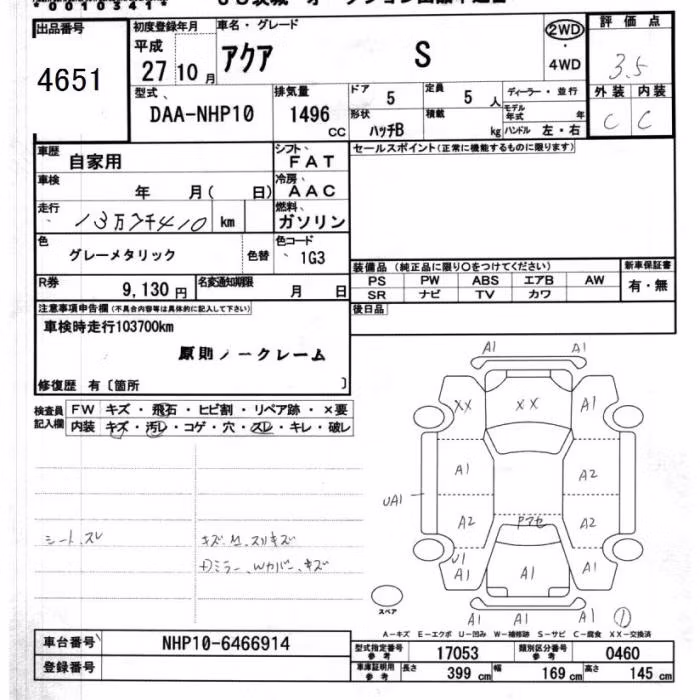 出品番号 初度登録年月 車名・グレード 2WD 評価点
4651 平成 27年 10月 アクア S ・ 4WD 3.5
型式、 排気量 ドア 5 定員 5人 ディーラー・並行 外装 内装
DAA-NHP10 1496 CC 形状 ハッチB 積載 kg モデル年式 年 C C
ハンドル 左・右
車歴 自家用 シフト、 FAT セールスポイント(正常に機能するものに限ります)
車検 年 月( 日) 冷房、 AAC
走行 13万7千410 km 燃料、 ガソリン
色 グレーメタリック 色替 色コード 1G3
装備品(純正品に限り○をつけてください) 新車保証書
R券 9,130円 名変通知期限 月 日 PS PW ABS エアB AW 有・無
SR ナビ TV カワ
注意事項申告欄(不具合内容等は具体的に記入して下さい) 後日品
車検時走行103700km
原則ノークレーム
修復歴 有〔箇所 〕
検査員 FW キズ・飛石・ヒビ割・リペア跡・×要
記入欄 内装 キズ・汚レ・コゲ・穴・スレ・キレ・破レ
A1 A1
XX XX A1
A1 A2
UA1
A2 A2
シート、スレ
U1
A1 A1 A1
スペア
A1 A1 1
A-キズ E-エクボ U-凹み W-補修跡 S-サビ C-腐食 XX-交換済
車台番号 NHP10-6466914 型式指定番号 参考 17053 類別区分番号 参考 0460
登録番号 車庫証明用 参考 長さ 399 cm 幅 169 cm 高さ 145 cm